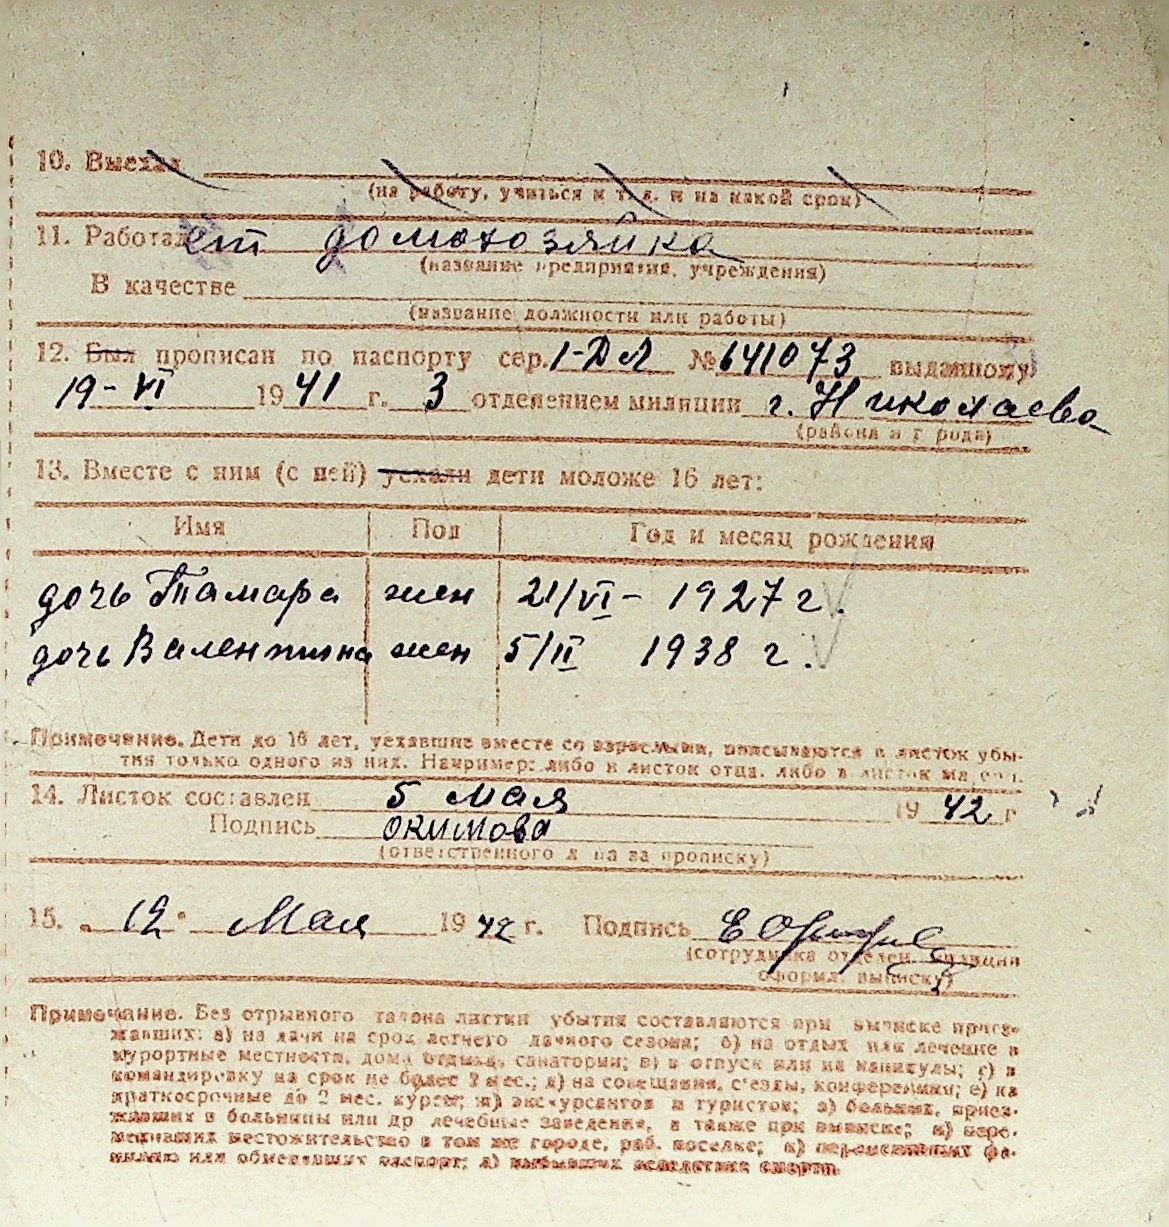 10. Выехал
(на работу, учиться и т. д. и на какой срок)
11. Работает домохозяйка
(название предприятия, учреждения)
В качестве
(название должности или работы)
12. Был прописан по паспорту сер. 1-ДЛ № 641073 выданному
19-VI 1941 г. 3 отделением милиции г. Николаева
(района и города)
13. Вместе с ним (с ней) уехали дети моложе 16 лет:
Имя Пол Год и месяц рождения
дочь Тамара жен 21/VI- 1927 г.
дочь Валентина жен 5/II 1938 г.
Примечание. Дети до 16 лет, уехавшие вместе со взрослыми, вписываются в листок убы-
тия только одного из них. Например: либо в листок отца, либо в листок матери.
14. Листок составлен 5 мая 1942 г
Подпись Окимова
(ответственного лица за прописку)
15. "12" Мая 1942 г. Подпись
(сотрудника отделен. милиции
оформл. выписку)
Примечание. Без отрывного талона листки убытия составляются при выписке приез-
жавших: а) на дачи на срок летнего дачного сезона; б) на отдых или лечение в
курортные местности, дома отдыха, санатории; в) в отпуск или на каникулы; г) в
командировку на срок не более 2 мес.; д) на совещания, съезды, конференции; е) на
краткосрочные до 2 мес. курсы; ж) экскурсантов и туристов; з) больных, приез-
жавших в больницы или др лечебные заведения, а также при выписке; и) пере-
менивших местожительство в том же городе, раб. поселке; к) переменивших фа-
милию или обменявших паспорт; л) выбывших вследствие смерти.